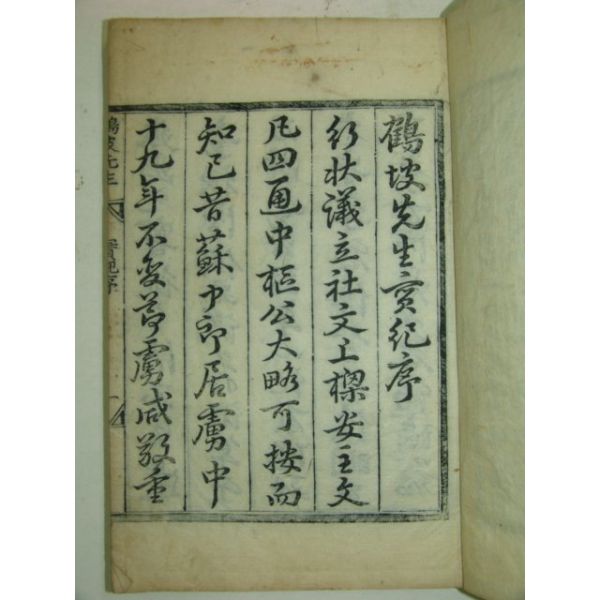 鶴坡先生實紀序
行狀議立社文上樑安主文
凡四通中樞公大略可按而
知已昔蘇中郎居虜中
十九年不變節虜咸敬重
鶴坡先生
實紀序